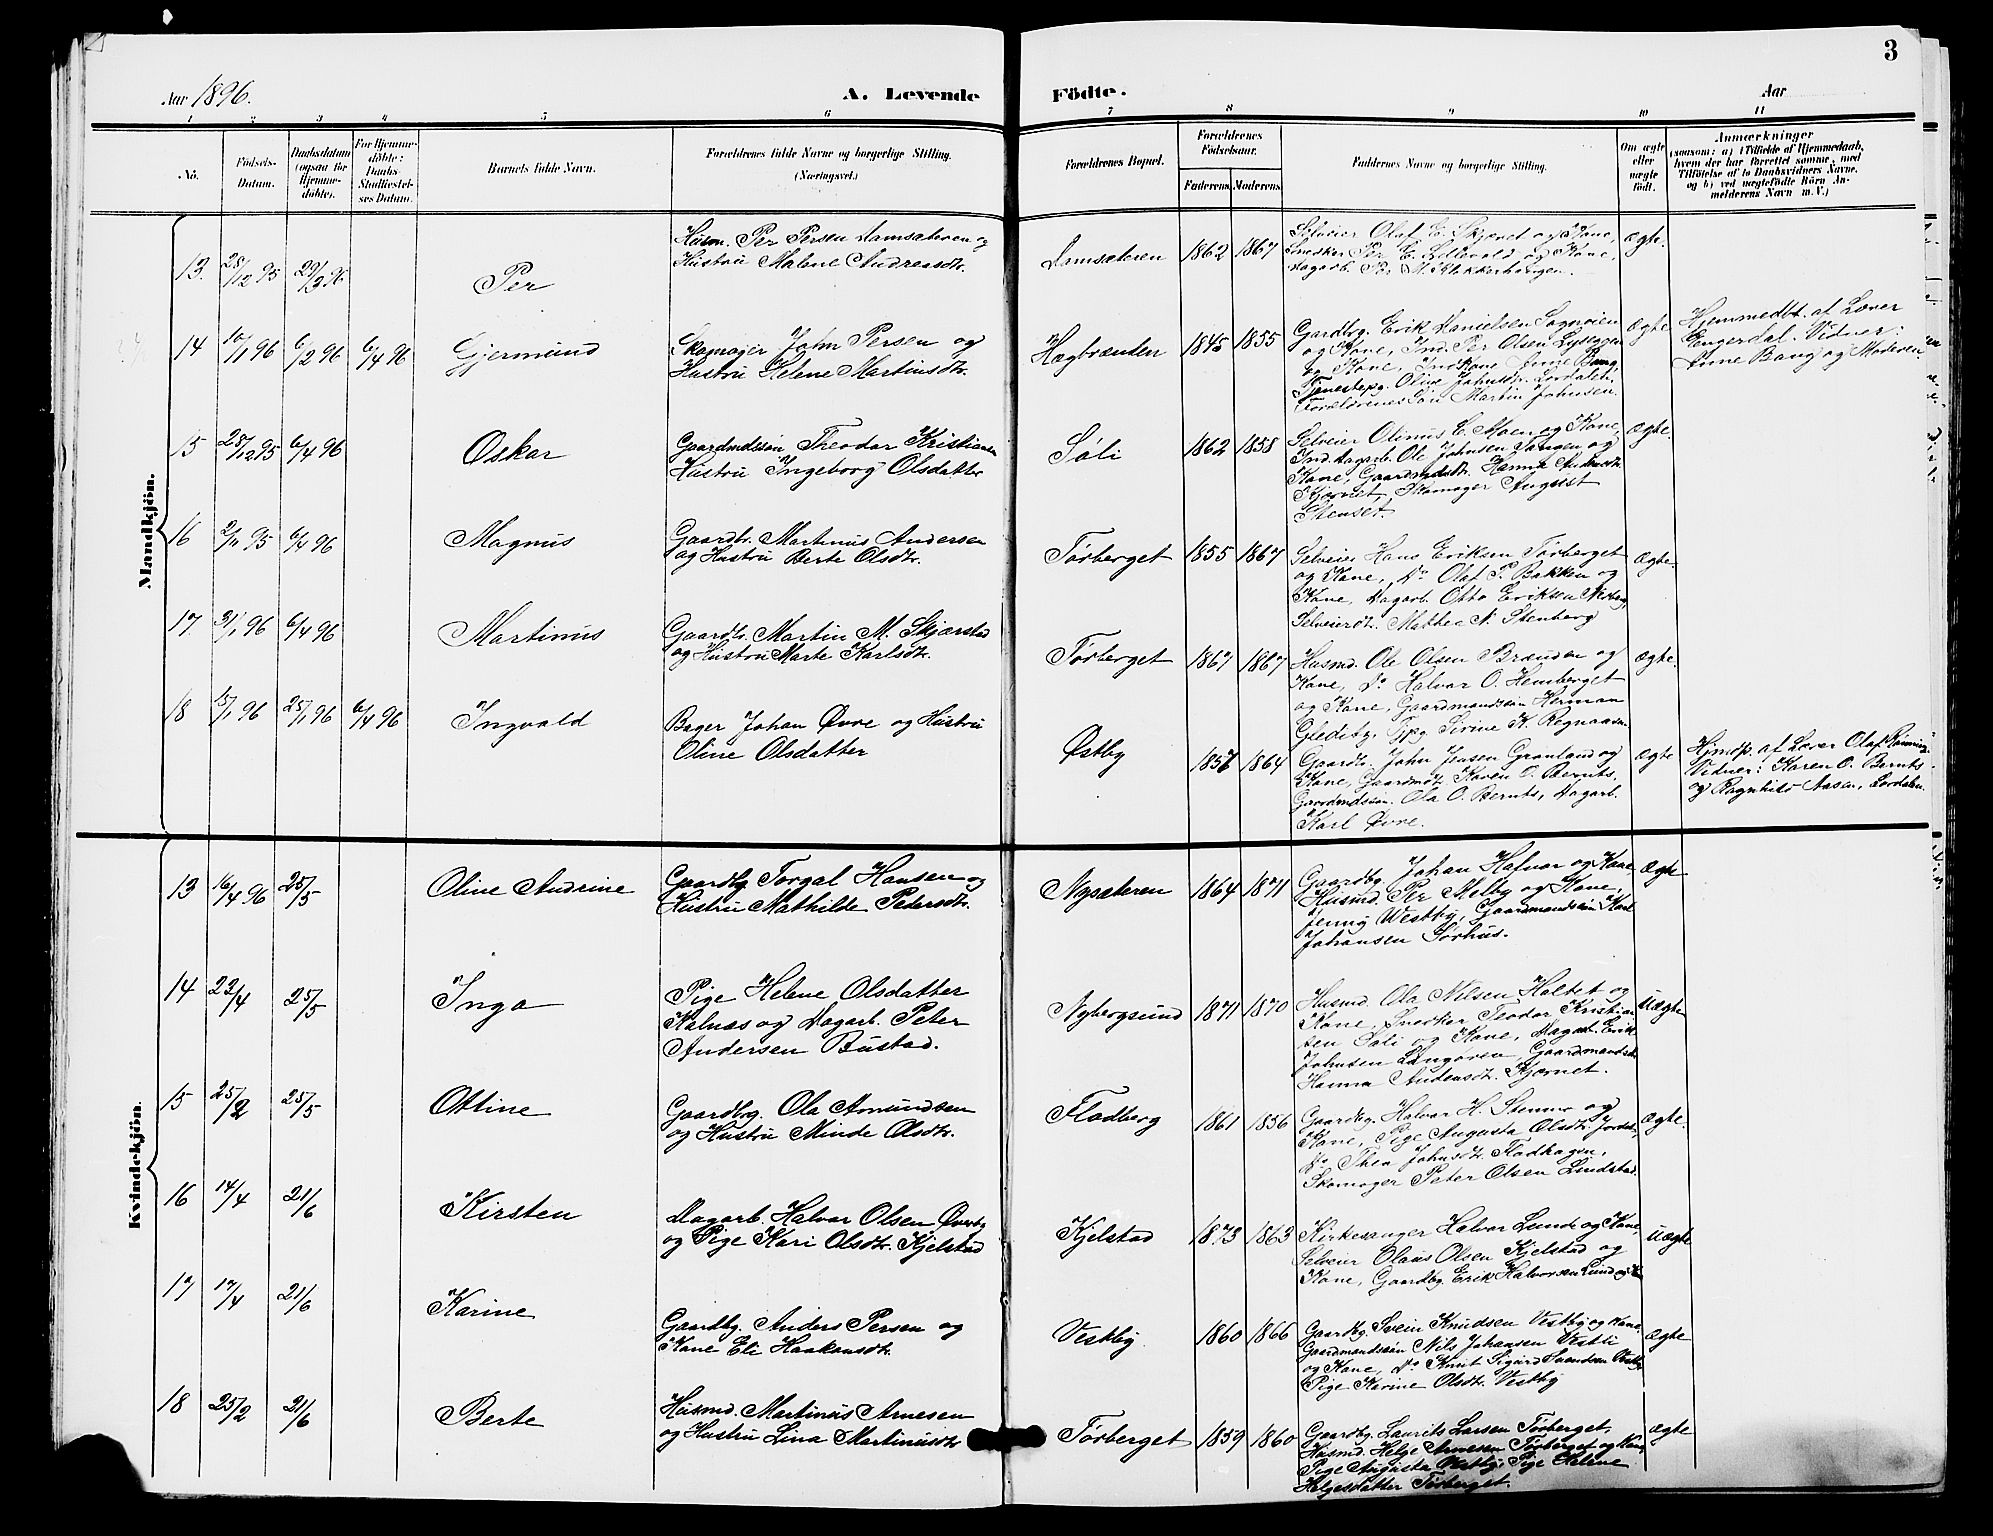 3
Aar 1896.
A. Levende Födte.
Aar
1 2 3 4 5 6 7 8 9 10 11
No.
Födsels-Datum.
Daabsdatum (ogsaa for Hjemmedöbte).
For Hjemmedöbte: Daabs-Stadfæstelses Datum.
Barnets fulde Navn.
Forældrenes fulde Navne og borgerlige Stilling.
(Næringsvei.)
Forældrenes Bopæl.
Forældrenes Födselsaar.
Faderens. Moderens.
Faddernes Navne og borgerlige Stilling.
Om ægte eller uægte födt.
Anmærkninger
(saasom: a) i Tilfælde af Hjemmedaab,
hvem der har forrettet samme, med
Tilföielse af to Daabsvidners Navne,
og b) ved uægtefödte Börn An-
melderens Navn m. V.)
Mandkjön.
13. 25/12 95 29/3 96 Per
Husm. Per Persen Damsæteren og
Hustru Malene Andreasdtr.
Damsæteren 1862 1867
Selveier Olaf E. Skjæret og Kone,
Snedker Per E. Lillevold og Kone,
Dagarb. Per M. Klokkerhaugen.
Ægte.
14 10/1 96 6/2 96 6/4 96 Gjermund
Skomager John Persen og
Hustru Helene Martinsdtr.
Hagbrænden 1845 1855
Gardbg. Erik Danielsen Sognøien
og Kone, Ind. Per Olsen Lyssgaen
og Kone, Indkone Anne Bang,
Tjenestepg. Oline Johnsdtr. Lordalen
Forældrenes Søn Martin Johnsen.
Ægte
Hjemmedbt. af Lærer
Engerdal. Vidner:
Anne Bang og Moderen
15 25/12 95 6/4 96 Oskar
Gaardmdssøn Theodor Kristiansen
Hustru Ingeborg Olsdatter
Søli 1862 1858
Selveier Olinus E. Moen og Kone,
Ind. Dagarb. Ole Johnsen Tangen og
Kone, Gaardmdsdtr. Hanna Andersdtr.
Kjærnet, Skomager August
Stenset.
Ægte.
16 2/11 95 6/4 96 Magnus
Gaardbr. Martinus Andersen
og Hustru Berte Olsdtr.
Tørberget 1855 1867
Selveier Hans Eriksen Tørberget
og Kone, Do Olaf P. Bakken og
Kone, Dagarb. Otto Eriksen Nesberg,
Selveierdt. Mathea N. Stenberg
Ægte.
17. 31/1 96 6/4 96 Martinus
Gaardbr. Martin M. Skjærstad
og Hustru Marte Karlsdtr.
Tørberget 1867 1867
Husmd. Ole Olsen Brænden og
Kone, Do Halvar O. Hemberget
og Kone, Gaardmandssøn Herman
Gledeby. Tjpg Sirine K. Regnaasen
Ægte.
18 15/1 96 25/1 96 6/4 96 Ingvald
Bager Johan Øvre og Hustru
Oline Olsdatter
Østby 1857 1864
Gaardb. John Jensen Grønland og
Kone, Gaardmdt. Karen O. Bernts,
Gaardmdssøn. Ola O. Bernts, Dagarb.
Karl Øvre.
Ægte
Hjmdp. af Lærer Olaf Rønning.
Vidner: Karen O. Bernts
og Ragnhild Aasen, Lordalen.
Kvindekjön.
13 16/4 96 25/5 Oline Andrine
Gaardbg Torgal Hansen og
Hustru Mathilde Pedersdtr.
Nysæteren 1864 1871
Gaardbg. Johan Hafnor og Kone,
Husmd. Per Moby og Kone,
Jenny Westby, Gaardmandssøn Karl
Johansen Sørhus.
Ægte
14 23/4 25/5 Inga
Pige Helene Olsdatter
Kalnæs og Dagarb. Peter
Andersen Bustad.
Nybergsund 1871 1870
Husmd. Ola Nilsen Haltet og
Kone, Snedker Teodor Kristian
sen Søli og Kone, Dagarb. Erik
Johnsen Langøren, Gaardmandsdt.
Hanna Andersdt. Kjærnet.
Uægte
15 25/2 25/5 Ottine
Gaardbrg. Ola Amundsen
og Hustru Minde Olsdtr.
Fladberg 1861 1856
Gaardbg. Halvar H. Stemmo og
Kone, Pige Augusta Olsdt. Jordet,
Do Thea Johnsdt. Fladhagen,
Skomager Peter Olsen Lindstad.
Ægte.
16 14/4 21/6 Kirsten
Dagarb. Halvar Olsen Øverby
og Pige Kari Olsdtr. Kjelstad
Kjelstad 1873 1863
Kirkesanger Halvar Lunde og Kone,
Selveier Olaus Olsen Kjelstad og
Kone, Gaardbg. Erik Halvorsen Lund og K
Uægte
17 17/4 21/6 Karine
Gaardbg. Anders Persen og
Kone Eli Haakonsdtr.
Vestby 1860 1866
Gaardbg. Svein Knudsen Vestby og Kone.
Gaardmandssøn Nils Johansen Vestli
og Kone, Do Knut Sigurd Svendsen Vestby
Pige Karine Olsdtr. Vestby
Ægte
18 25/2 21/6 Berte
Husmd. Martinus Arnesen
og Hustru Lina Martinusdtr.
Tørberget 1859 1860
Gaardbg. Laurits Larsen Tørberget,
Husmd. Helge Arnesen Tørberget og Kone,
Pige Augusta Vestby, Pige Helene
Helgesdatter Tørberget.
Ægte